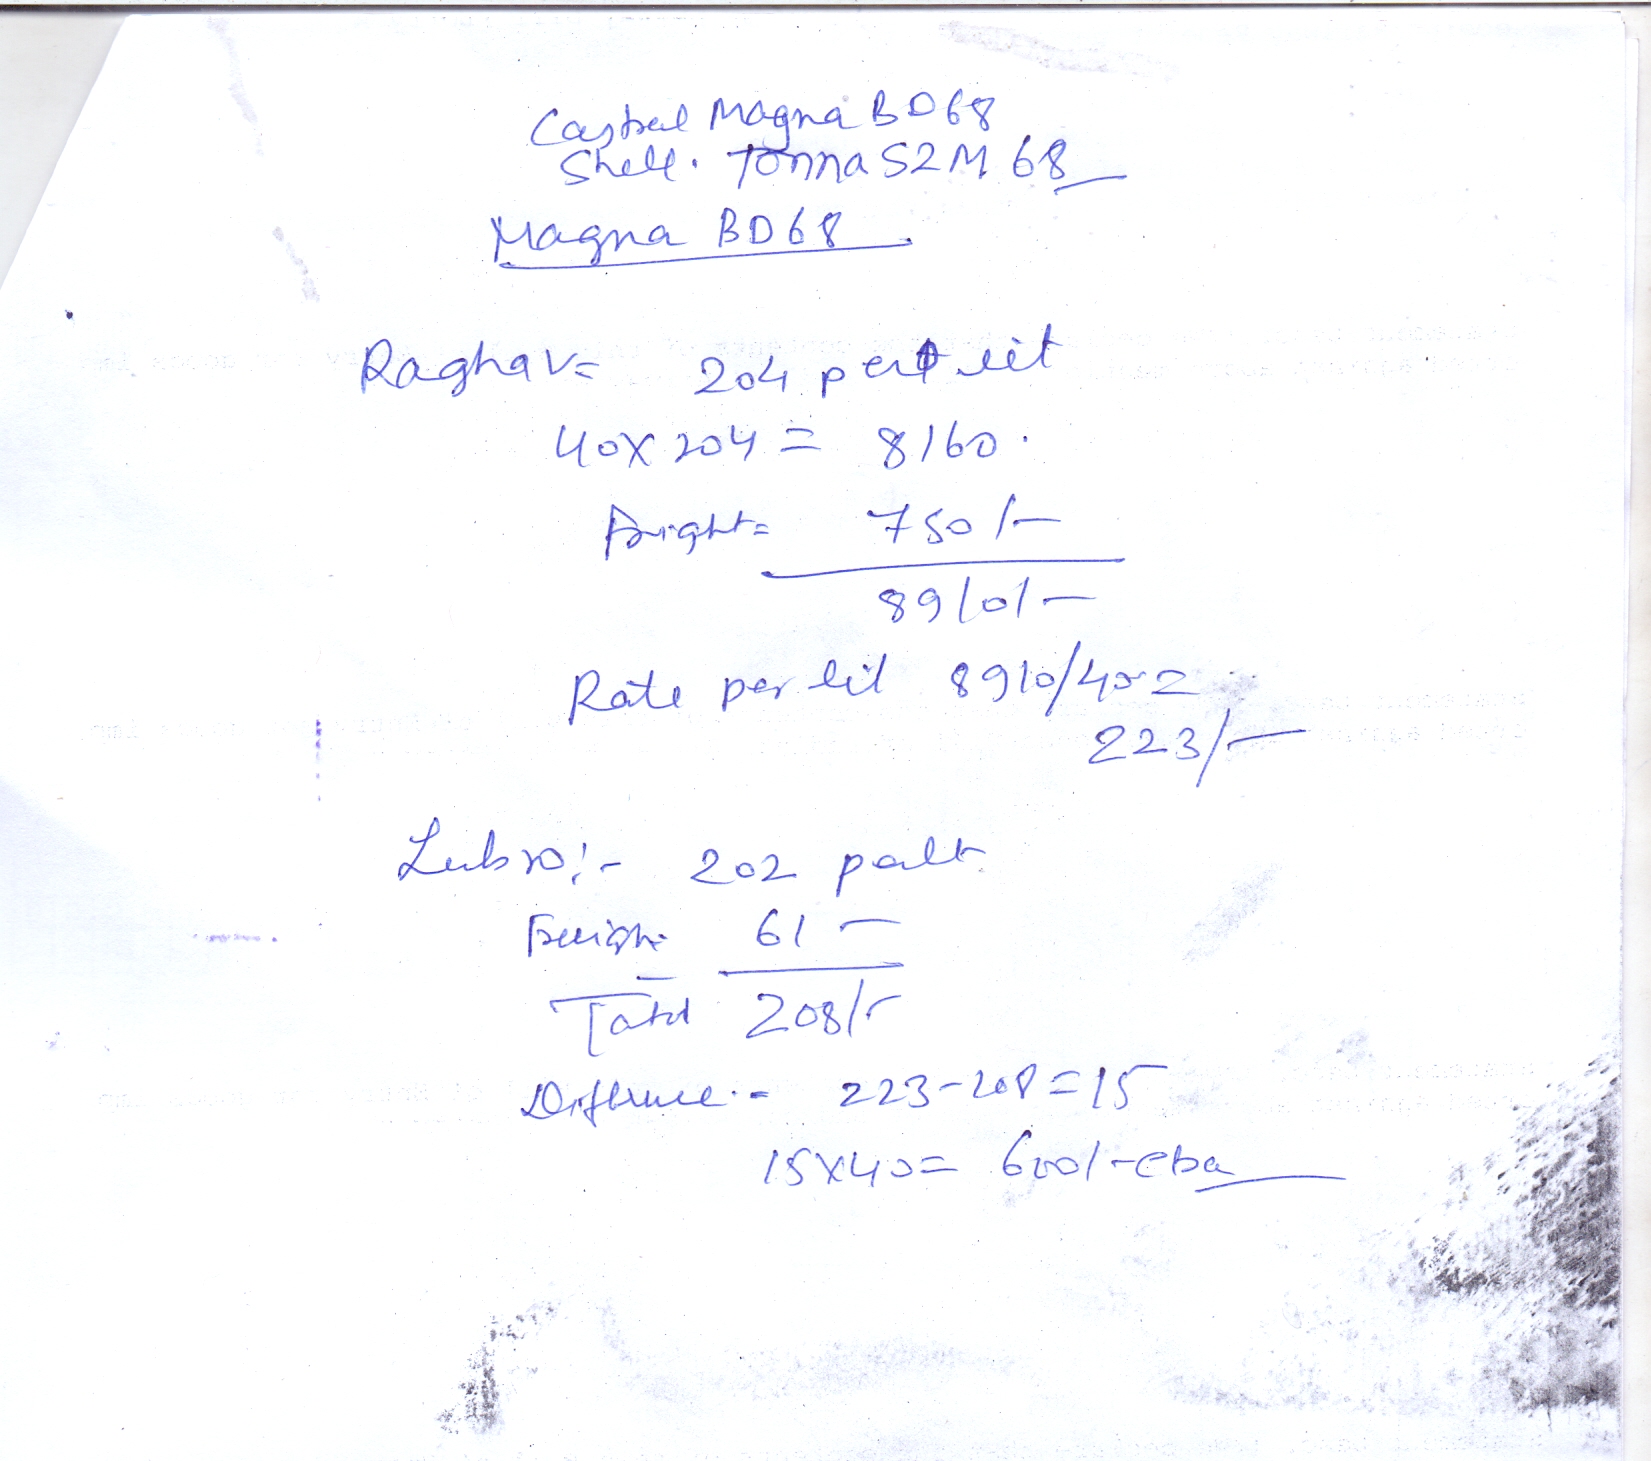 Castrol Magna BD68
Shell. Tonna S2M 68
Magna BD68
Raghav= 204 per lit
40X204 = 8160.
Freight= 750/-
8910/-
Rate per lit 8910/40=
223/-
Lubro:- 202 per lt
Freight 6/-
Total 208/-
Difference:- 223-208=15
15X40= 600/-